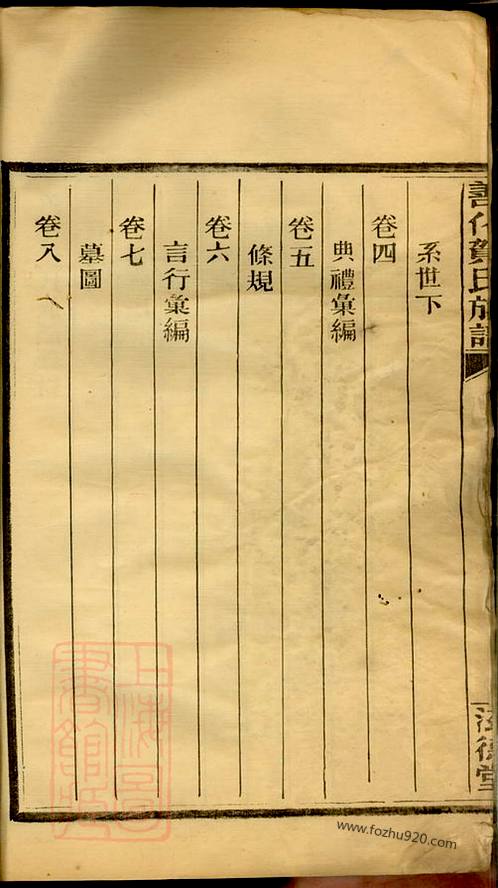 善化賀氏族譜
系世下
卷四
典禮彙編
卷五
條規
卷六
言行彙編
卷七
墓圖
卷八
德堂
上海圖
書館藏
www.fozhu920.com